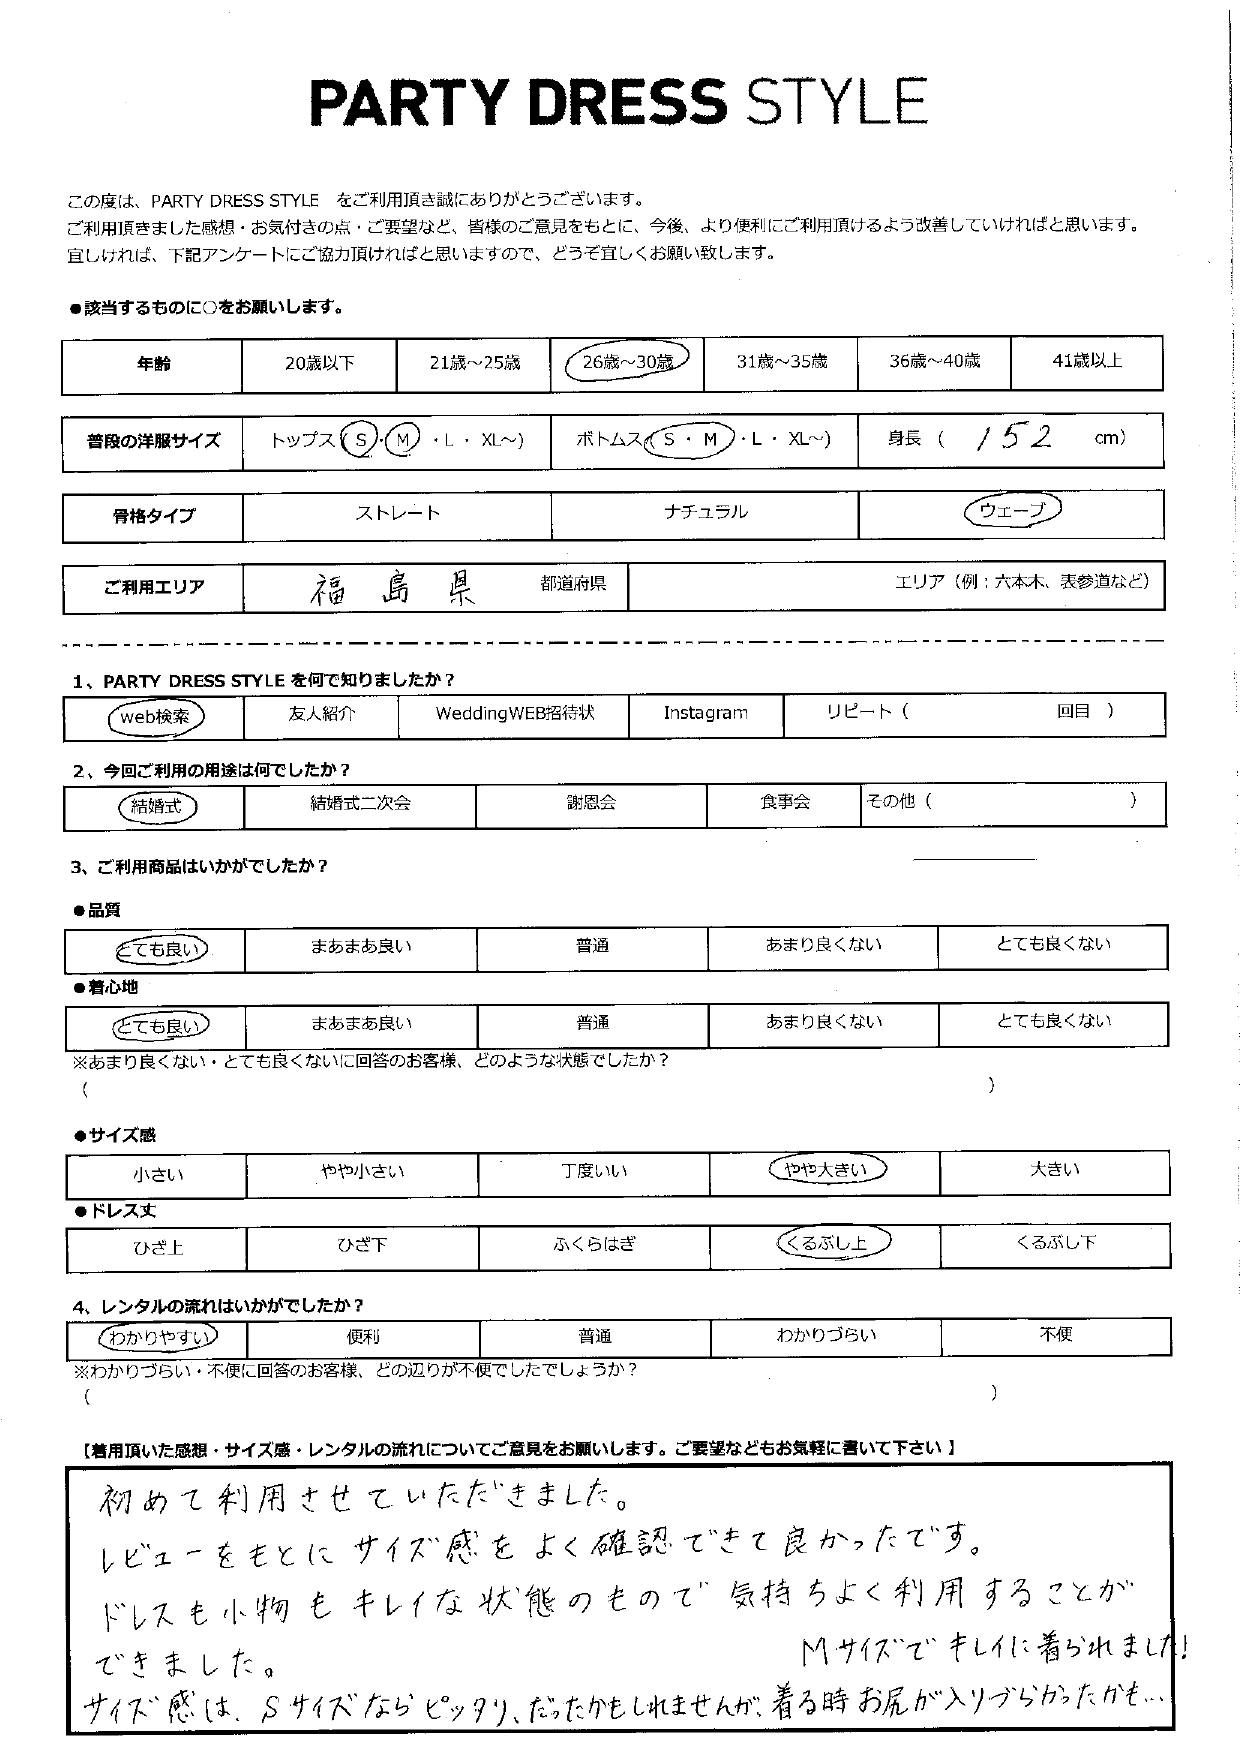 PARTY DRESS STYLE
この度は、PARTY DRESS STYLE をご利用頂き誠にありがとうございます。
ご利用頂きました感想・お気付きの点・ご要望など、皆様のご意見をもとに、今後、より便利にご利用頂けるよう改善していければと思います。
宜しければ、下記アンケートにご協力頂ければと思いますので、どうぞ宜しくお願い致します。
●該当するものに○をお願いします。
年齢 20歳以下 21歳～25歳 26歳～30歳 31歳～35歳 36歳～40歳 41歳以上
普段の洋服サイズ トップス(S・M・L・XL～) ボトムス(S・M・L・XL～) 身長（152 cm）
骨格タイプ ストレート ナチュラル ウェーブ
ご利用エリア 福島県 都道府県 エリア（例：六本木、表参道など）
1、PARTY DRESS STYLE を何で知りましたか？
web検索 友人紹介 WeddingWEB招待状 Instagram リピート（ 回目 ）
2、今回ご利用の用途は何でしたか？
結婚式 結婚式二次会 謝恩会 食事会 その他（ ）
3、ご利用商品はいかがでしたか？
●品質
とても良い まあまあ良い 普通 あまり良くない とても良くない
●着心地
とても良い まあまあ良い 普通 あまり良くない とても良くない
※あまり良くない・とても良くないに回答のお客様、どのような状態でしたか？
（ ）
●サイズ感
小さい やや小さい 丁度いい やや大きい 大きい
●ドレス丈
ひざ上 ひざ下 ふくらはぎ くるぶし上 くるぶし下
4、レンタルの流れはいかがでしたか？
わかりやすい 便利 普通 わかりづらい 不便
※わかりづらい・不便に回答のお客様、どの辺りが不便でしたでしょうか？
（ ）
【着用頂いた感想・サイズ感・レンタルの流れについてご意見をお願いします。ご要望などもお気軽に書いて下さい】
初めて利用させていただきました。
レビューをもとにサイズ感をよく確認できて良かったです。
ドレスも小物もキレイな状態のもので気持ちよく利用することが
できました。 Mサイズでキレイに着られました!
サイズ感は、Sサイズならピッタリ、だったかもしれませんが、着る時お尻が入りづらかったかも…